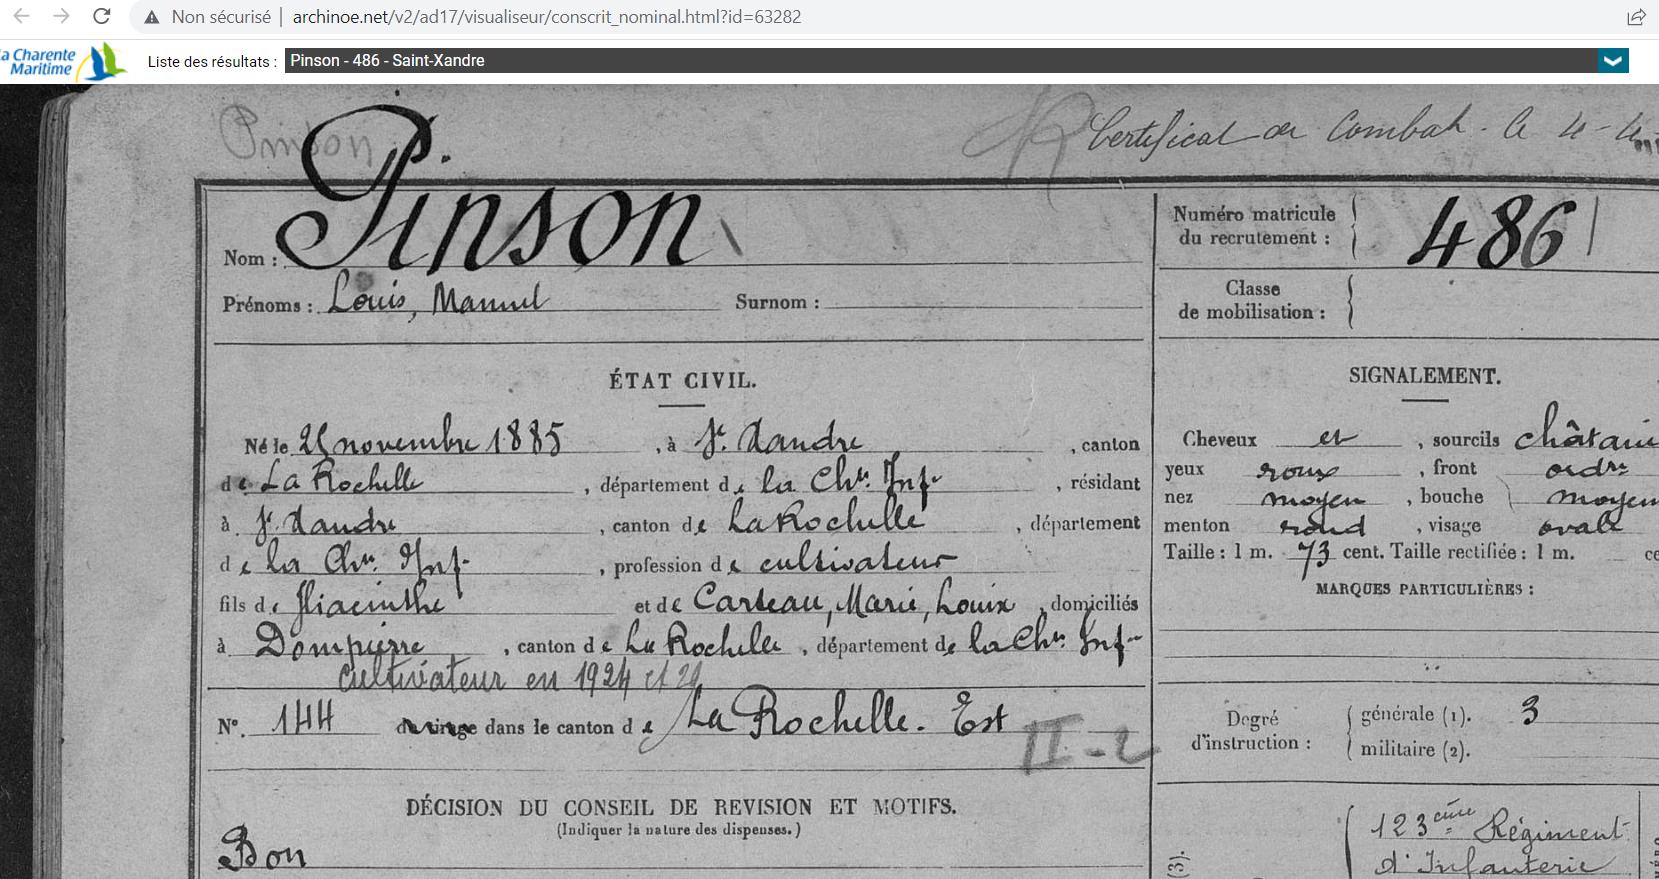 Non sécurisé | archinoe.net/v2/ad17/visualiseur/conscrit_nominal.html?id=63282
la Charente
Maritime
Liste des résultats : Pinson - 486 - Saint-Xandre
Pinson
Certificat de Combat. le 4-4-
Nom : Pinson
Prénoms : Louis, Manuel Surnom :
Numéro matricule
du recrutement : 486
Classe
de mobilisation :
ÉTAT CIVIL.
Né le 25 novembre 1885, à St. Xandre, canton
de La Rochelle, département de la Chte. Infre, résidant
à St. Xandre, canton de La Rochelle, département
de la Chte. Infre, profession de cultivateur
fils de Hiacinthe et de Carteau, Marie, Louise, domiciliés
à Dompierre, canton de La Rochelle, département de la Chte Infre
cultivateur en 1924 et 29
N°. 144 de tirage dans le canton de La Rochelle. Est
II-2
DÉCISION DU CONSEIL DE REVISION ET MOTIFS.
(Indiquer la nature des dispenses.)
Bon
SIGNALEMENT.
Cheveux et, sourcils châtain
yeux roux, front ordre
nez moyen, bouche moyen
menton rond, visage ovale
Taille : 1 m. 73 cent. Taille rectifiée : 1 m. ce
MARQUES PARTICULIÈRES :
Degré
d'instruction :
générale (1). 3
militaire (2).
123ème Régiment
d'Infanterie
(3).